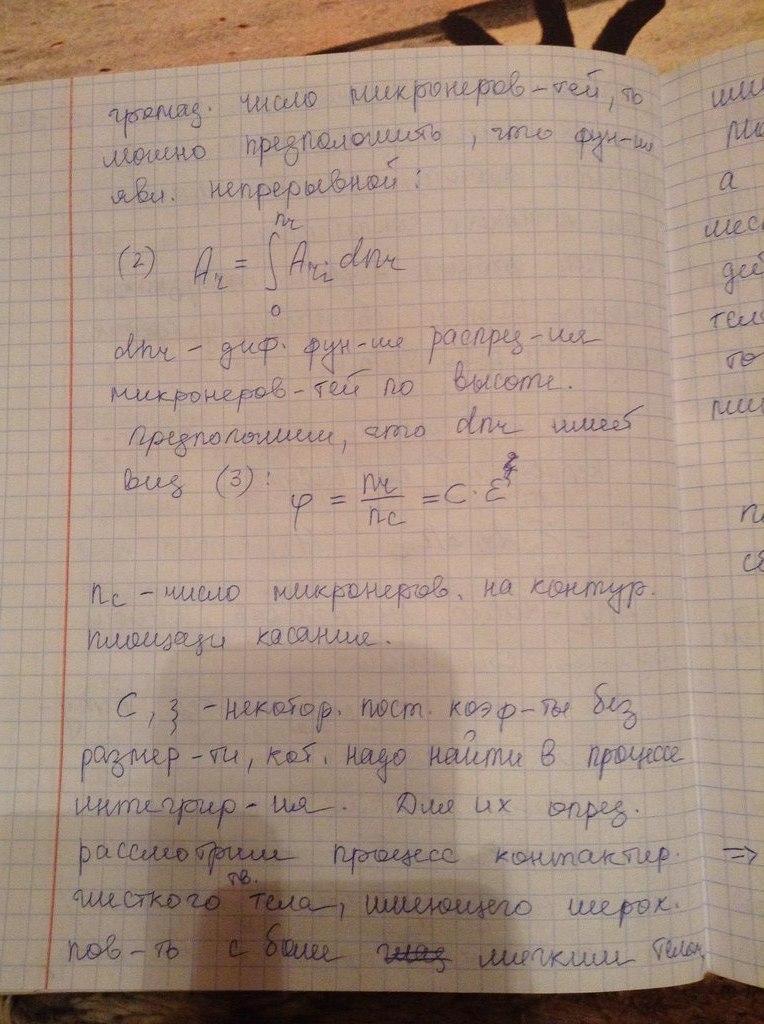 громад. число микронеров-тей, то
можно предположить, что фун-ия
явл. непрерывной:
nr
(2) Ar = ∫ Ari dnr
0
dnr - диф. фун-ия распред-ия
микронеров-тей по высоте.
Предположим, что dnr имеет
вид (3): φ = nr/nc = C · ε^ξ
nc - число микронеров. на контур.
площади касания.
C, ξ - некотор. пост. коэф-ты без
размер-ти, кот. надо найти в процессе
интегрир-ия. Для их опред.
рассмотрим процесс контактир. =>
жесткого тв. тела, имеющего шерох.
пов-ть с более мягким телом